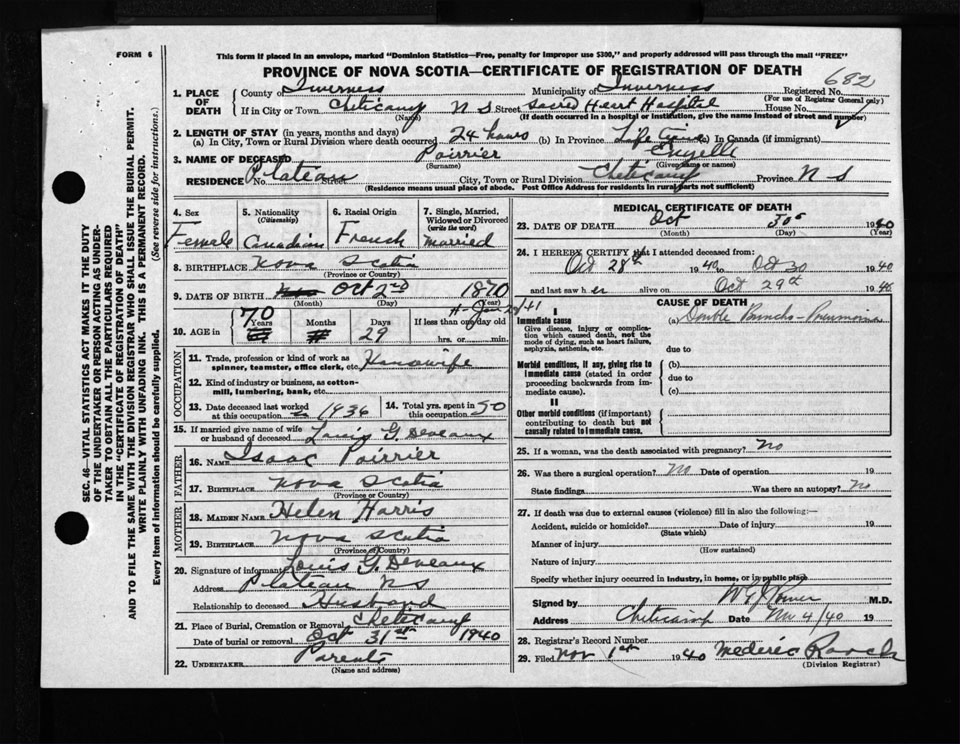 FORM 6
This form if placed in an envelope, marked "Dominion Statistics—Free, penalty for improper use $300," and properly addressed will pass through the mail "FREE"
PROVINCE OF NOVA SCOTIA—CERTIFICATE OF REGISTRATION OF DEATH
682
1. PLACE OF DEATH
County of Inverness Municipality of Inverness Registered No.
(For use of Registrar General only)
If in City or Town Cheticamp N S Street Sacred Heart Hospital House No.
(Name) (If death occurred in a hospital or institution, give the name instead of street and number)
2. LENGTH OF STAY (in years, months and days)
(a) In City, Town or Rural Division where death occurred 24 hours (b) In Province Life time (c) In Canada (if immigrant)
3. NAME OF DECEASED Poirrier
(Surname) (Given name or names)
RESIDENCE No. Plateau Street City, Town or Rural Division Cheticamp Province N S
(Residence means usual place of abode. Post Office Address for residents in rural parts not sufficient)
4. Sex Female
5. Nationality (Citizenship) Canadian
6. Racial Origin French
7. Single, Married, Widowed or Divorced (write the word) Married
8. BIRTHPLACE Nova Scotia
(Province or Country)
9. DATE OF BIRTH Oct 2nd 1870
(Month) (Day) (Year)
10. AGE in 70 Years Months 29 Days If less than one day old
hrs. or min.
OCCUPATION
11. Trade, profession or kind of work as spinner, teamster, office clerk, etc. Housewife
12. Kind of industry or business, as cotton-mill, lumbering, bank, etc.
13. Date deceased last worked at this occupation 1936
14. Total yrs. spent in this occupation 50
15. If married give name of wife or husband of deceased Louis G. Deveaux
FATHER
16. NAME Isaac Poirrier
17. BIRTHPLACE Nova Scotia
(Province or Country)
MOTHER
18. MAIDEN NAME Helen Harris
19. BIRTHPLACE Nova Scotia
(Province or Country)
20. Signature of informant Louis G. Deveaux
Address Plateau N S
Relationship to deceased Husband
21. Place of Burial, Cremation or Removal Cheticamp
Date of burial or removal Oct 31st 1940
22. UNDERTAKER Parents
(Name and address)
MEDICAL CERTIFICATE OF DEATH
23. DATE OF DEATH Oct 30 1940
(Month) (Day) (Year)
24. I HEREBY CERTIFY that I attended deceased from:
Oct 28th 1940 to Oct 30 1940
and last saw her alive on Oct 29th 1940
CAUSE OF DEATH
I
Immediate cause
Give disease, injury or complication which caused death, not the mode of dying, such as heart failure, asphyxia, asthenia, etc.
(a) Double Broncho-Pneumonia
due to
Morbid conditions, if any, giving rise to immediate cause (stated in order proceeding backwards from immediate cause).
(b)
due to
(c)
II
Other morbid conditions (if important) contributing to death but not causally related to immediate cause.
25. If a woman, was the death associated with pregnancy? No
26. Was there a surgical operation? No Date of operation 19
State findings Was there an autopsy? No
27. If death was due to external causes (violence) fill in also the following:—
Accident, suicide or homicide? Date of injury 19
(State which)
Manner of injury
(How sustained)
Nature of injury
Specify whether injury occurred in industry, in home, or in public place
Signed by M.D.
Address Cheticamp Date Nov 4/40 19
28. Registrar's Record Number
29. Filed Nov 1st 1940 Mederic Roach
(Division Registrar)
SEC. 46—VITAL STATISTICS ACT MAKES IT THE DUTY
OF THE UNDERTAKER OR PERSON ACTING AS UNDER-
TAKER TO OBTAIN ALL THE PARTICULARS REQUIRED
IN THE "CERTIFICATE OF REGISTRATION OF DEATH"
AND TO FILE THE SAME WITH THE DIVISION REGISTRAR WHO SHALL ISSUE THE BURIAL PERMIT.
WRITE PLAINLY WITH UNFADING INK. THIS IS A PERMANENT RECORD.
Every item of information should be carefully supplied. (See reverse side for instructions.)